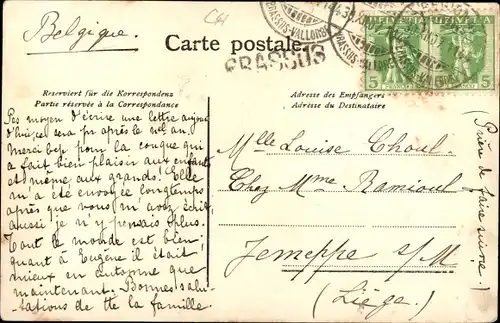 Belgique.
Carte postale.
BRASSUS
HELVETIA
5 5
BRASSUS-VALLORBE
Reserviert für die Korrespondenz
Partie réservée à la Correspondance
Adresse des Empfängers
Adresse du Destinataire
Pas moyen d'écrire une lettre aujour
d'hui, ce sera pr après le nl an.
Merci bcp pour la conque qui
a fait bien plaisir aux enfants
et même aux grands! Elle
m'a été envoyée longtemps
après que vous m'avez écrit,
aussi je n'y pensais plus.
Tout le monde est bien;
quant à Eugène il était
mieux en automne que
maintenant. Bonnes salu-
tations de tte la famille.
Mlle Louise Choul
Chez Mme Ramioul
Jemeppe s/M
(Liège.)
(Prière de faire suivre.)